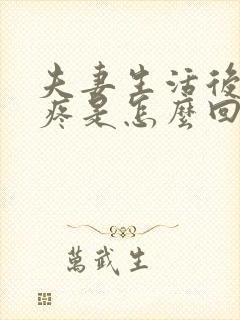 夫妻生活後
疼是怎麼回
萬武生